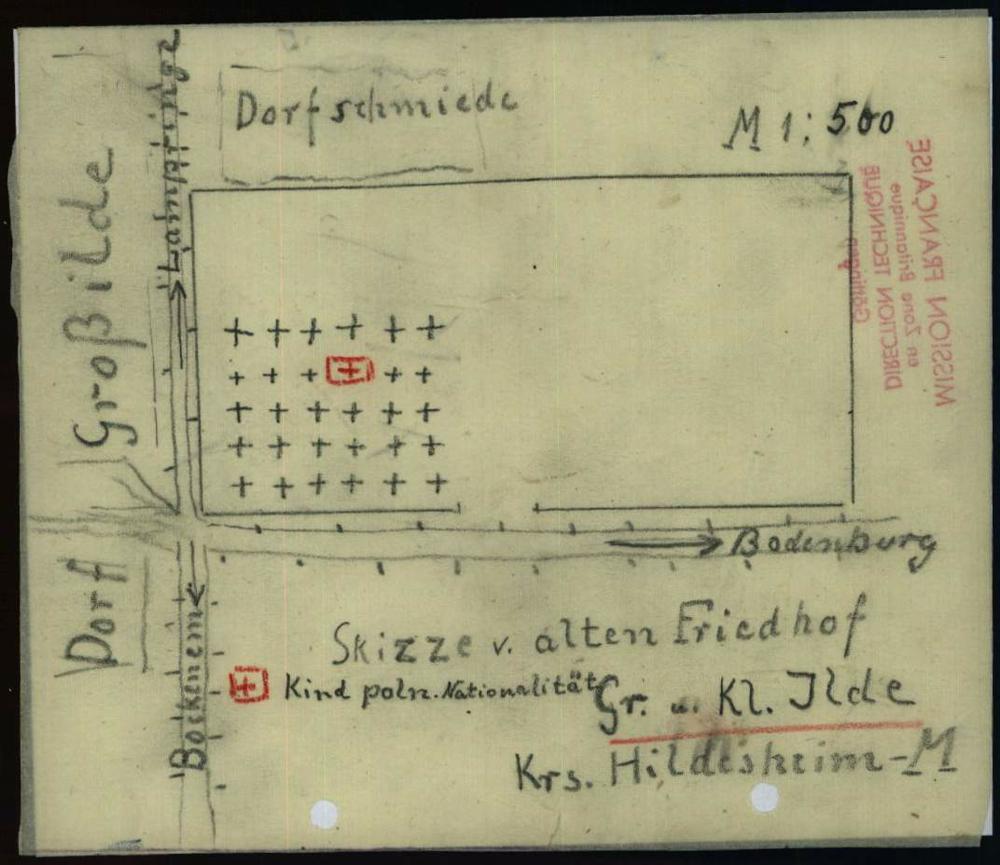 Dorfschmiede
M 1:500
Lampringe
Dorf Großilde
MISSION FRANÇAISE
en Zone Britannique
DIRECTION TECHNIQUE
Göttingen
Bodenburg
Bockenem
Skizze v. alten Friedhof
Gr. u. Kl. Ilde
Krs. Hildesheim-M
Kind poln. Nationalität